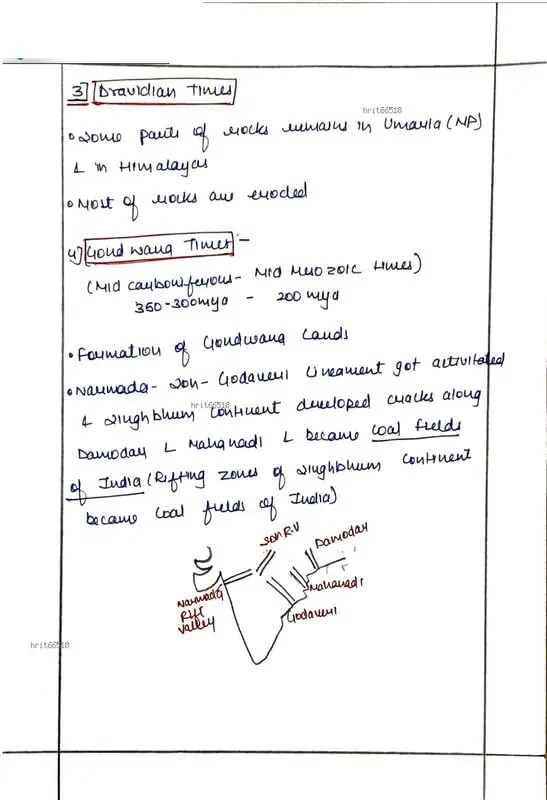 3] Dravidian Times
hrit66518
• Some parts of rocks remains in Umaria (MP)
& in Himalayas
• Most of rocks are eroded
4] Gondwana Times -
(Mid carboniferous - Mid Mesozoic times)
360-300mya - 200 mya
• Formation of Gondwana Lands
• Narmada - Son - Godaveri Lineament got activitated
hrit66518
& Singhbhum continent developed cracks along
Damodar & Mahanadi & became coal fields
of India (Rifting zones of Singhbhum continent
became coal fields of India)
Son R.V
Damodar
Narmada
Rift
valley
Mahanadi
Godaveri
hrit66518